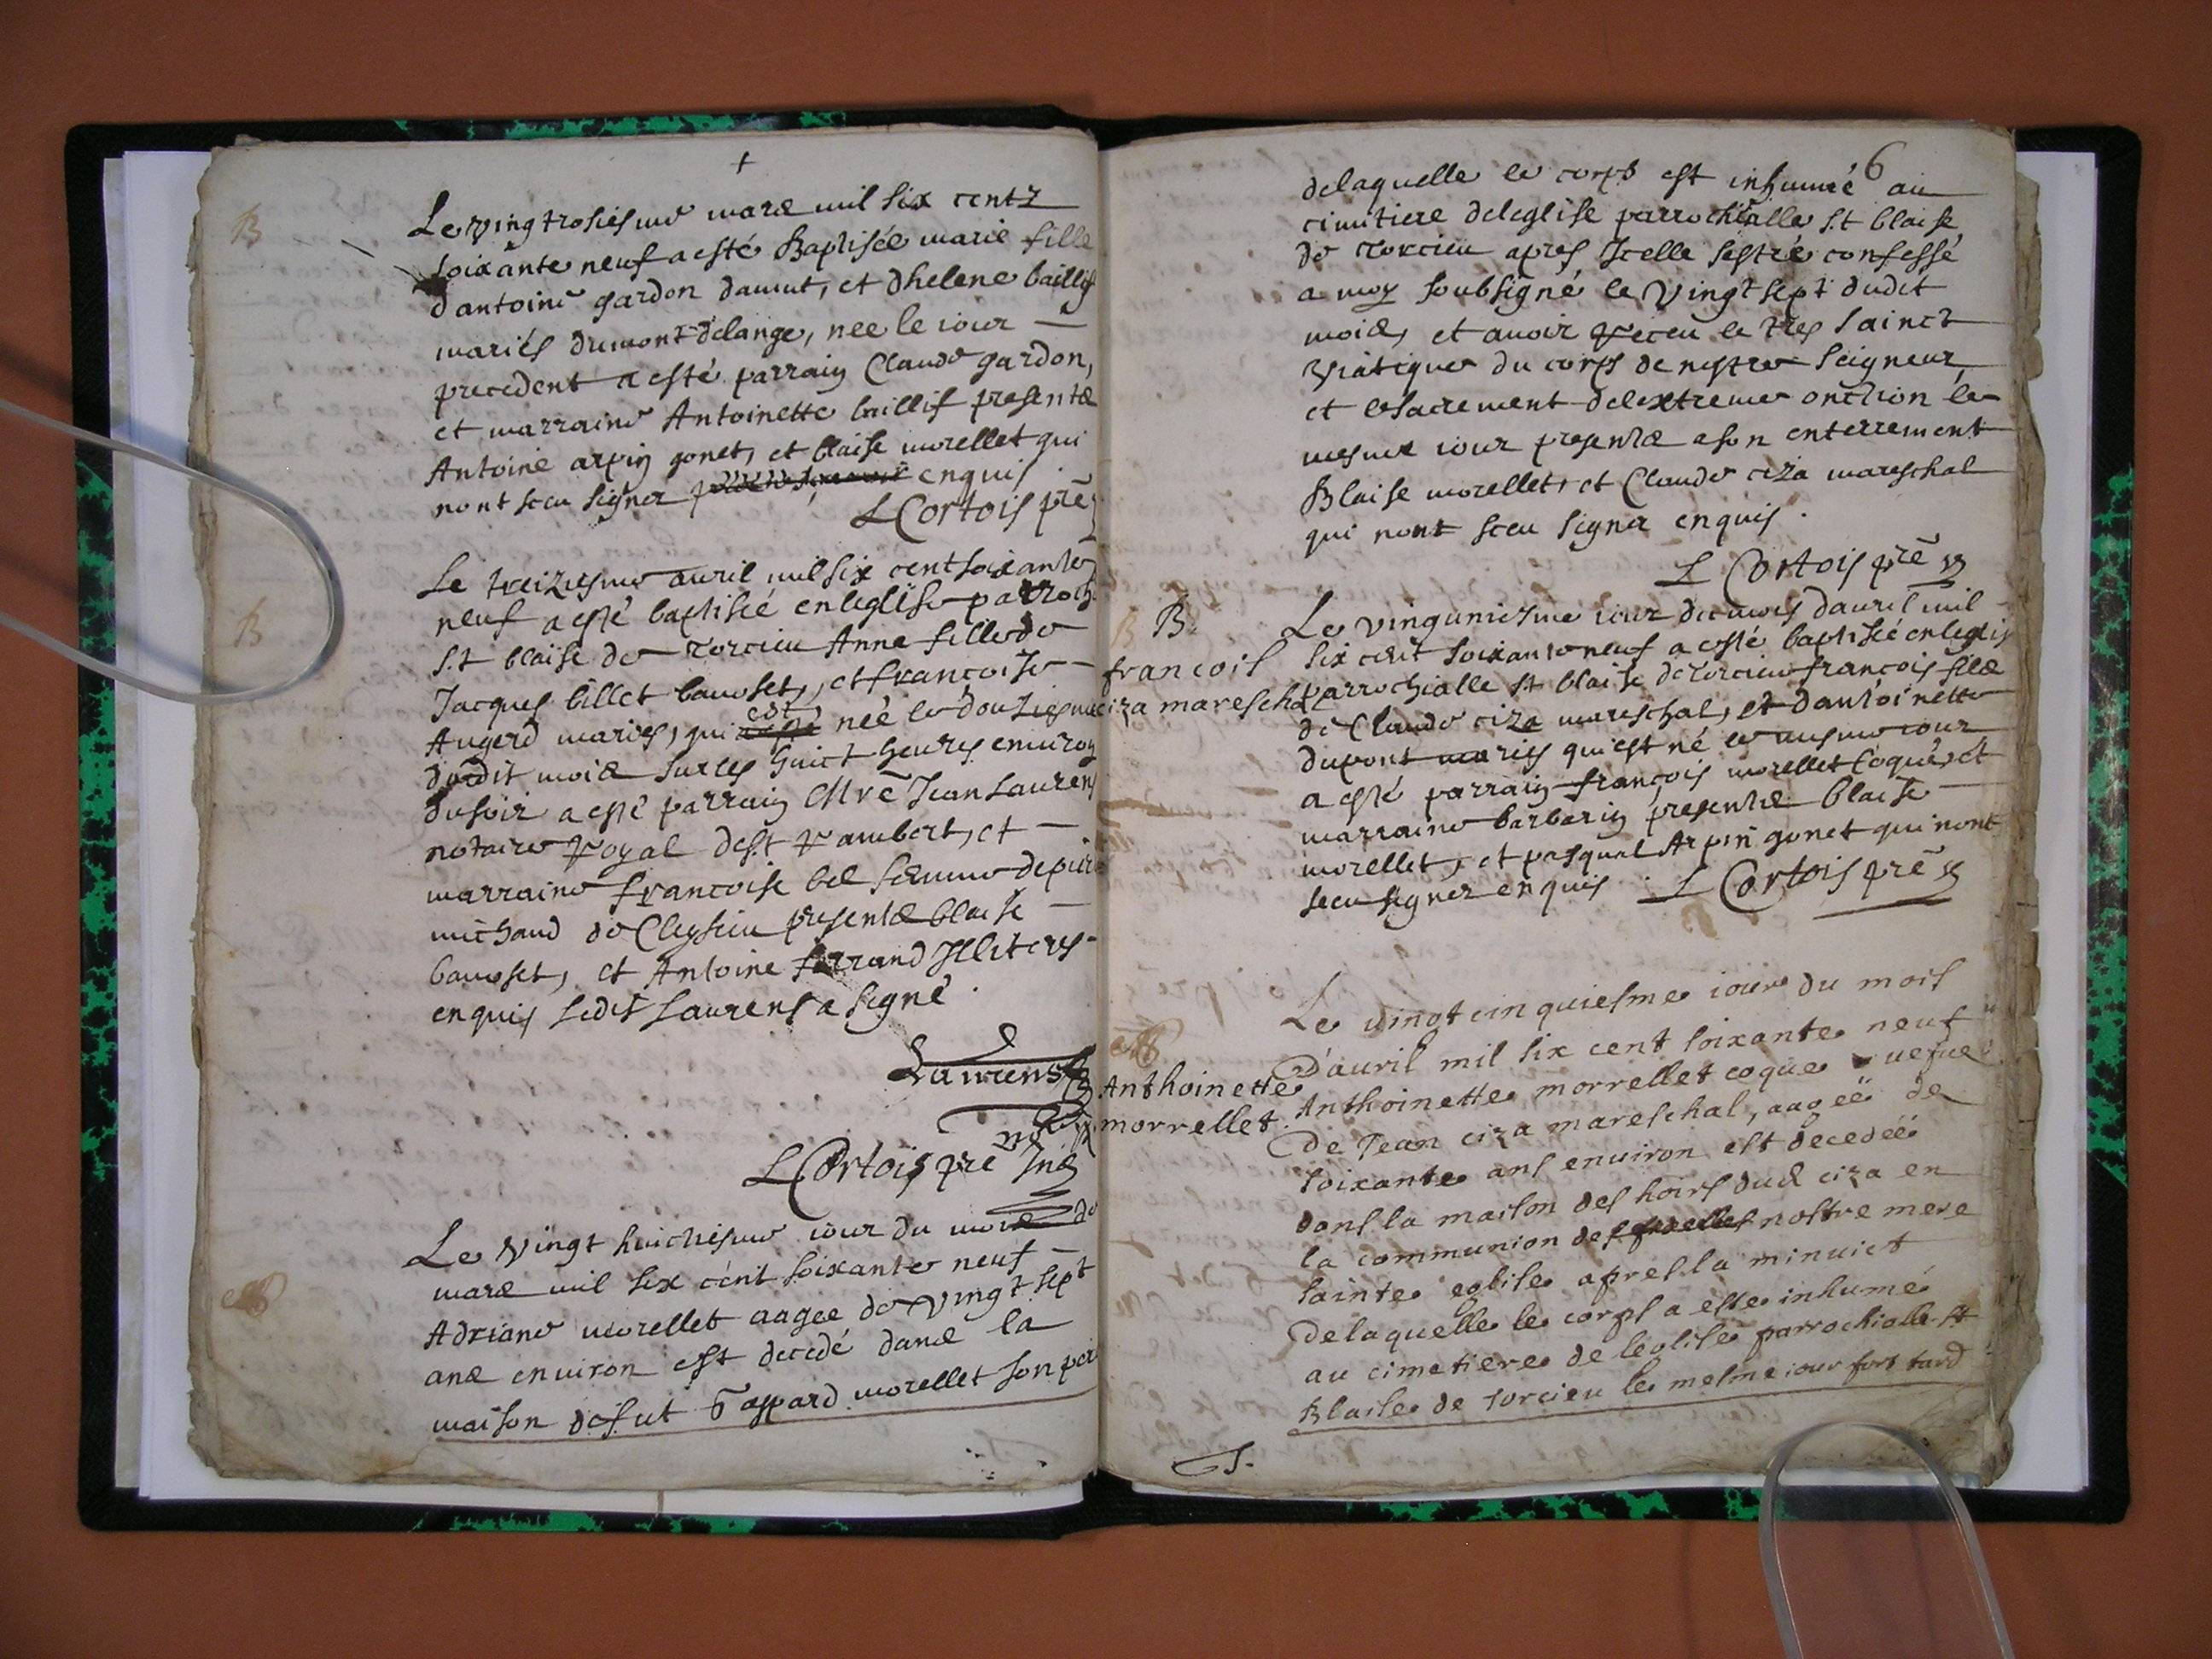 +
B
Le vingtrosiesme mars mil six centz
soixante neuf a esté Baptisée marie fille
d'antoine gardon damut, et dhelene baillif
mariés dumont delange, nee le iour
precedent a esté parrain Claude gardon,
et marraine Antoinette baillif presents
Antoine arpin gonet, et blaise morellet qui
nont sceu signer enquis
L Cortois prē
B
Le treiziesme auril mil six cent soixante
neuf a esté baptisée en leglise parroch.
S.t blaise de Torcieu Anne fille de
Jacques billet bauoset, et francoise
Augerd mariés, qui est née le douziesme
dudit mois sur les huict heures enuiron
du soir a esté parrain Mre Jean Laurens
notaire royal de S.t rambert, et
marraine francoise bel femme de pierre
michaud de Cleysieu presents blaise
bauoset, et Antoine ferrand Illiteres
enquis ledit Laurens a signé.
Laurens
L Cortois pre
M
Le vingt huictiesme iour du mois de
mars mil six cent soixante neuf
Adriane morellet aagee de vingt sept
ans enuiron est decedé dans la
maison de fut Gaspard morellet son pere
6
delaquelle le corps est inhumée au
cimitiere deleglise parrochialle S.t blaise
de Torcieu apres Icelle sestre confessé
a moy soubsigné le vingt sept dudit
mois, et auoir receu le tres sainct
viatique du corps de nostre seigneur,
et le sacrement delextreme onction le
mesme iour presents a son enterrement
Blaise morellet, et Claude ciza mareschal
qui nont sceu signer enquis.
L Cortois prē
B B.
francois
ciza mareschal
Le vingunieme iour du mois dauril mil
six cent soixante neuf a esté baptisée en leglis
parrochialle S.t blaise de Torcieu francois fils
de Claude ciza mareschal, et dantoinette
dupont mariés qui est né le mesme iour
a esté parrain francois morellet Coque, et
marraine barbarin presents blaise
morellet, et pasqual Arpin gonet qui nont
sceu signer enquis. L Cortois prē
M
Anthoinette
morrellet.
Le vingt cinquiesme iour du mois
D'auril mil six cent soixante neuf
Anthoinette morrellet coque uefue
De Jean ciza mareschal, aagee de
soixante ans enuiron est decedée
dans la maison des hoirs dud ciza en
la communion des fidelles nostre mere
sainte eglise apres la minuict
Delaquelle le corps a este inhumé
au cimetiere de l'eglise parrochialle S.t
Blaise de torcieu le mesme iour fort tard
S.